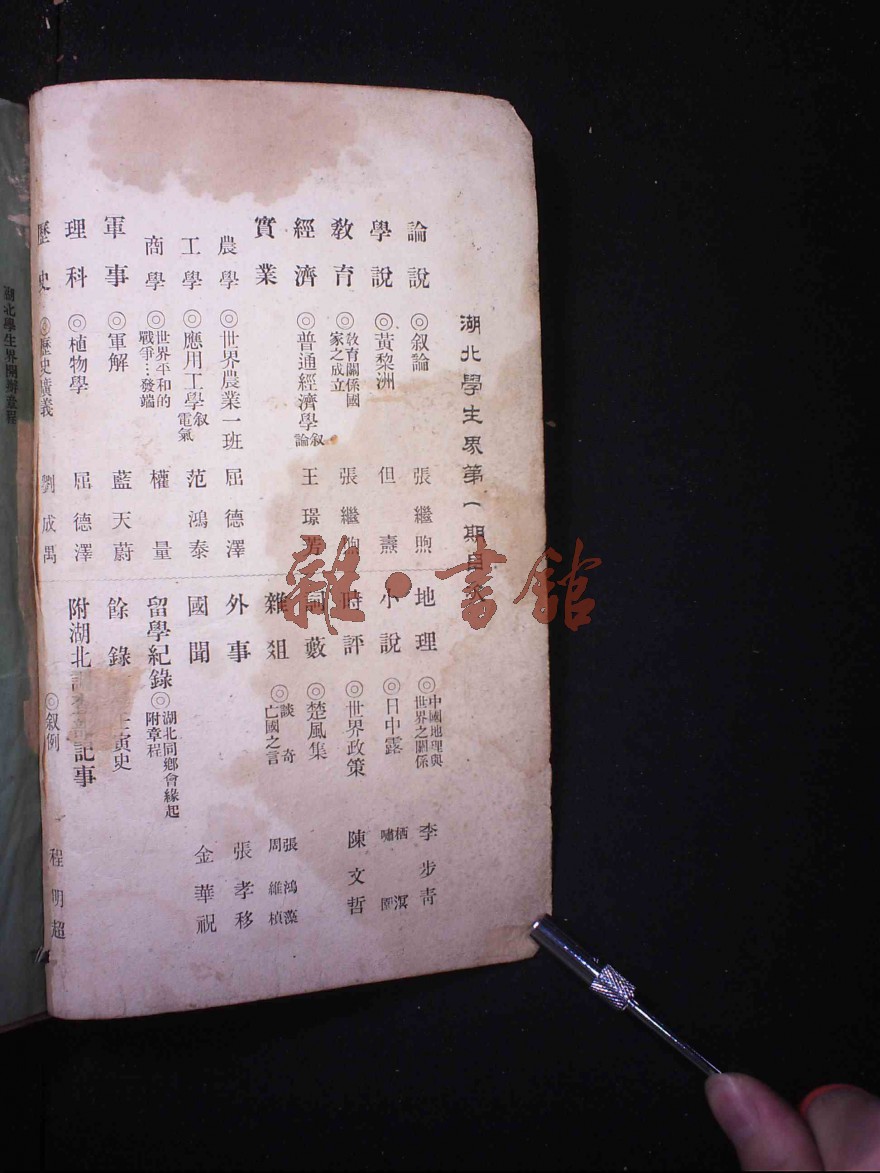 湖北學生界第一期目次
論說 ◎叙論 張繼煦
學說 ◎黃黎洲 但燾
教育 ◎教育關係國家之成立 張繼煦
經濟 ◎普通經濟學叙論 王璟芳
實業
農學 ◎世界農業一班 屈德澤
工學 ◎應用工學叙電氣 范鴻泰
商學 ◎世界平和的戰爭…發端 權量
軍事 ◎軍解 藍天蔚
理科 ◎植物學 屈德澤
歷史 ◎歷史廣義 劉成禺
地理 ◎中國地理與世界之關係 李步青
小說 ◎日中露
時評 ◎世界政策 陳文哲
詞藪 ◎楚風集
雜俎 ◎談奇 張鴻藻
亡國之言 周維楨
外事 張孝移
國聞 金華祝
留學紀錄 ◎湖北同鄉會緣起附章程
餘錄 壬寅史
附湖北調查部記事 ◎叙例 程明超
湖北學生界開辦章程
雜·書館